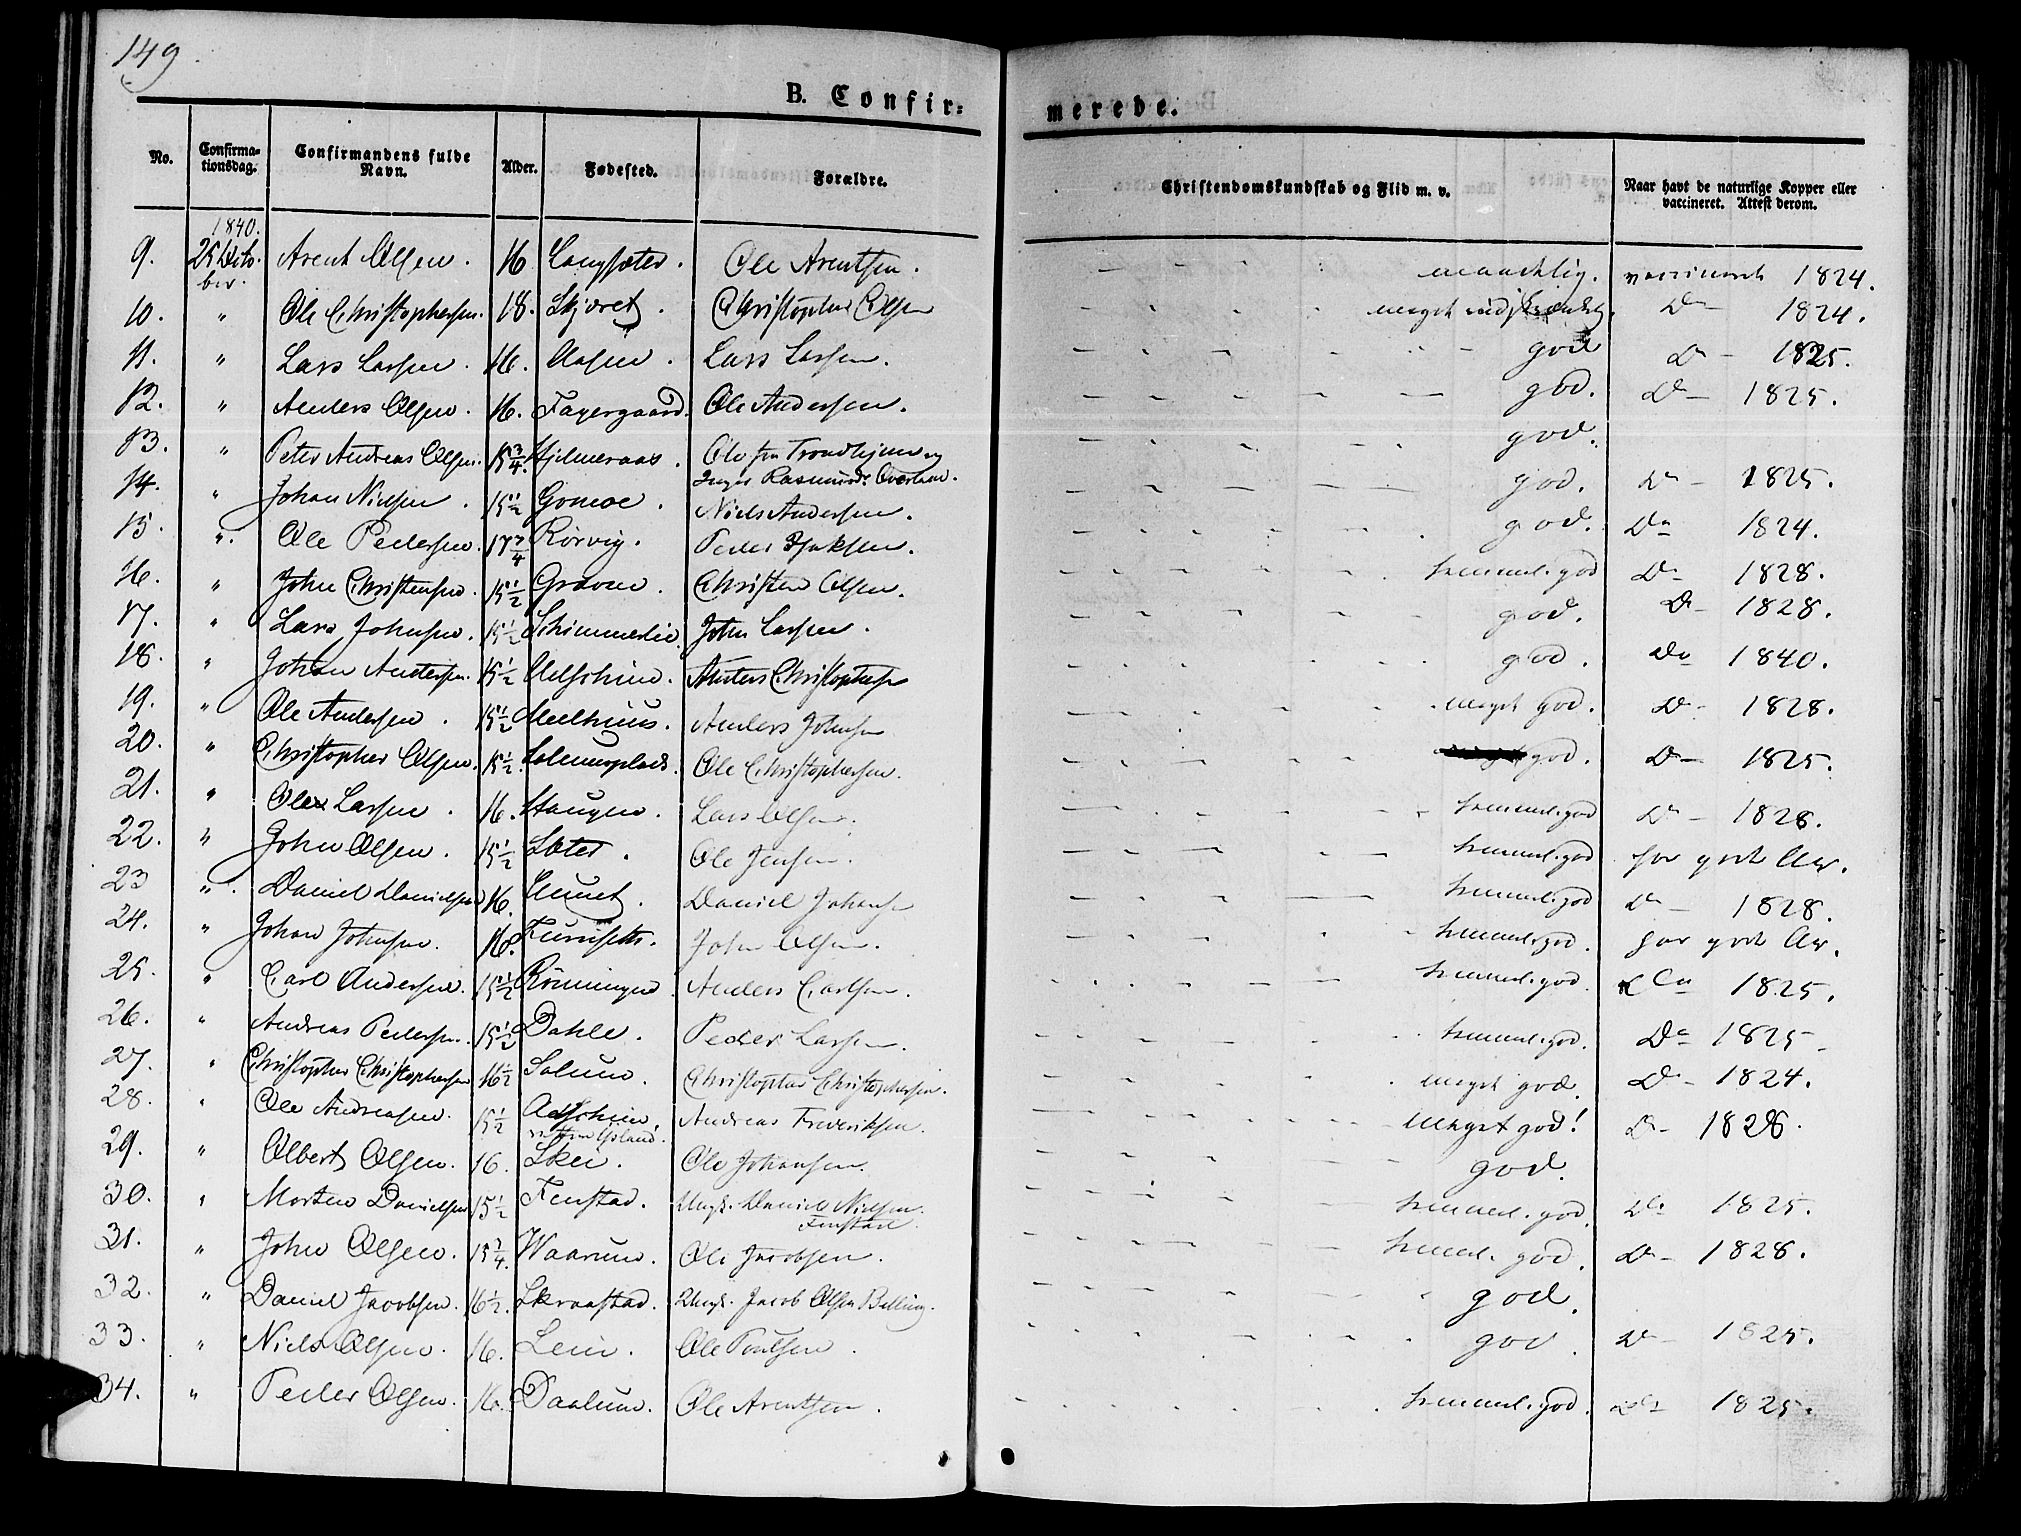 149.
B. Confir=
merede.
No. Confirma-tionsdag. Confirmandens fulde Navn. Alder. Fødested. Forældre. Christendomskundskab og Flid m. v. Naar havt de naturlige Kopper eller vaccineret. Attest derom.
1840.
9. 25 Octo-ber. Arent Olsen. 16 Langsæter. Ole Arentsen. maadelig. vaccineret 1824.
10. " Ole Christophersen. 18. Skjøret. Christopher Olsen meget D 1824.
11. " Lars Larsen. 16. Aasen. Lars Larsen. god D 1825.
12. " Anders Olsen. 16. Fagergaard. Ole Andersen. god. D 1825.
13. " Peter Andreas Olsen. 15 3/4. Hjelmeraas. Ole fra Trondhjem og god.
Inger Rasmusd. Overland.
14. " Johan Nielsen. 15 1/2 Gomoe. Niels Andersen. god. D 1825.
15. " Ole Pedersen. 17 3/4 Rörvig. Peder Isaksen. god. D 1824.
16. " John Christensen. 15 1/2 Graven. Christen Olsen. temmel. god D 1828.
17. " Lars Johnsen. 15 1/2 Schimmelie John Larsen. god. D 1828.
18. " Johan Andersen. 15 1/2 Anders Christophers god. D 1840.
19. " Ole Andersen. 15 1/2 Meelhuus. Anders Johnsen meget god. D 1828.
20. " Christopher Olsen. 15 1/2. Ole Christophersen. god. D 1825.
21. " Ole Larsen. 16. Haugen. Lars Olsen. temmel. god D 1828.
22. " John Olsen. 15 1/2 Sæter. Ole Jensen. temmel. god har godt Ar.
23 " Daniel Danielsen 16. Daniel Johans temmel. god D 1828.
24. " Johan Johnsen. 16. John Olsen. temmel. god. har godt Ar.
25. " Carl Andersen. 15 1/2 Rönningen Anders Carlsen. temmel. god. 1825.
26. " Andreas Pedersen. 15 1/2 Dahle. Peder Larsen. temmel. god. D 1825
27. " Christopher Christophersen 16 1/2 Solum. Christopher Christophersen. meget god. D 1824.
28. " Ole Andreasen. 15 1/2 Andreas Frederiksen. Meget god! D 1828.
29. " Albert Olsen. 16. Skei. Ole Johansen. god.
30. " Morten Danielsen 15 1/2 Finstad. Ungk. Daniel Nielsen temmel. god. D 1825.
Finstad.
31. " John Olsen. 15 3/4. Waarum. Ole Jacobsen. temmel. god. D 1828.
32. " Daniel Jacobsen. 16 1/2. Skraastad. Ungk. Jacob Olsen Belling. god.
33. " Niels Olsen. 16. Lein. Ole Poulsen. god. D 1825.
34. " Peder Olsen. 16. Daalum. Ole Arentsen. temmel. god. D 1825.